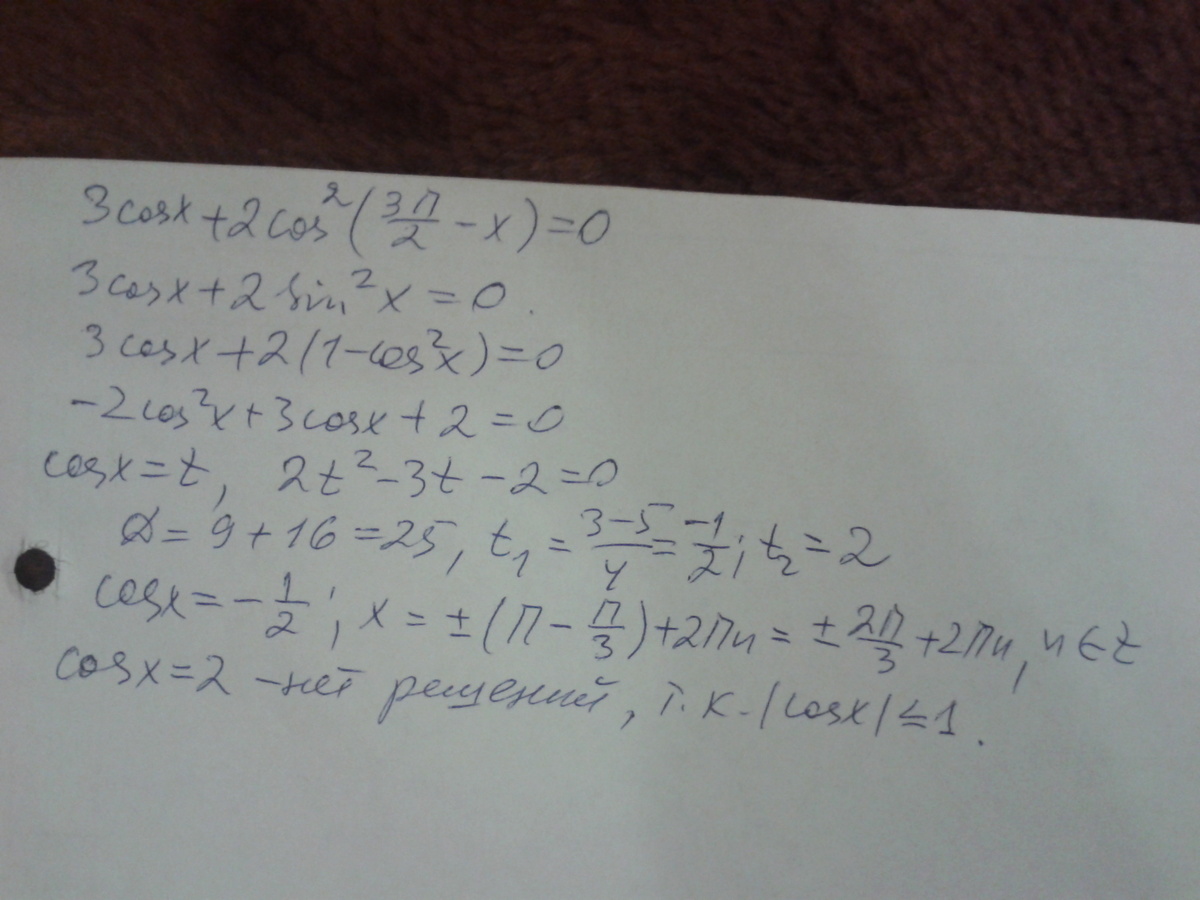 3cosx+2cos²(3π/2-x)=0
3cosx+2sin²x=0.
3cosx+2(1-cos²x)=0
-2cos²x+3cosx+2=0
cosx=t, 2t²-3t-2=0
D=9+16=25, t₁=(3-5)/4=-1/2; t₂=2
cosx=-1/2; x=±(π-π/3)+2πn=±2π/3+2πn, n∈Z
cosx=2 -нет решений, т.к. |cosx|≤1.